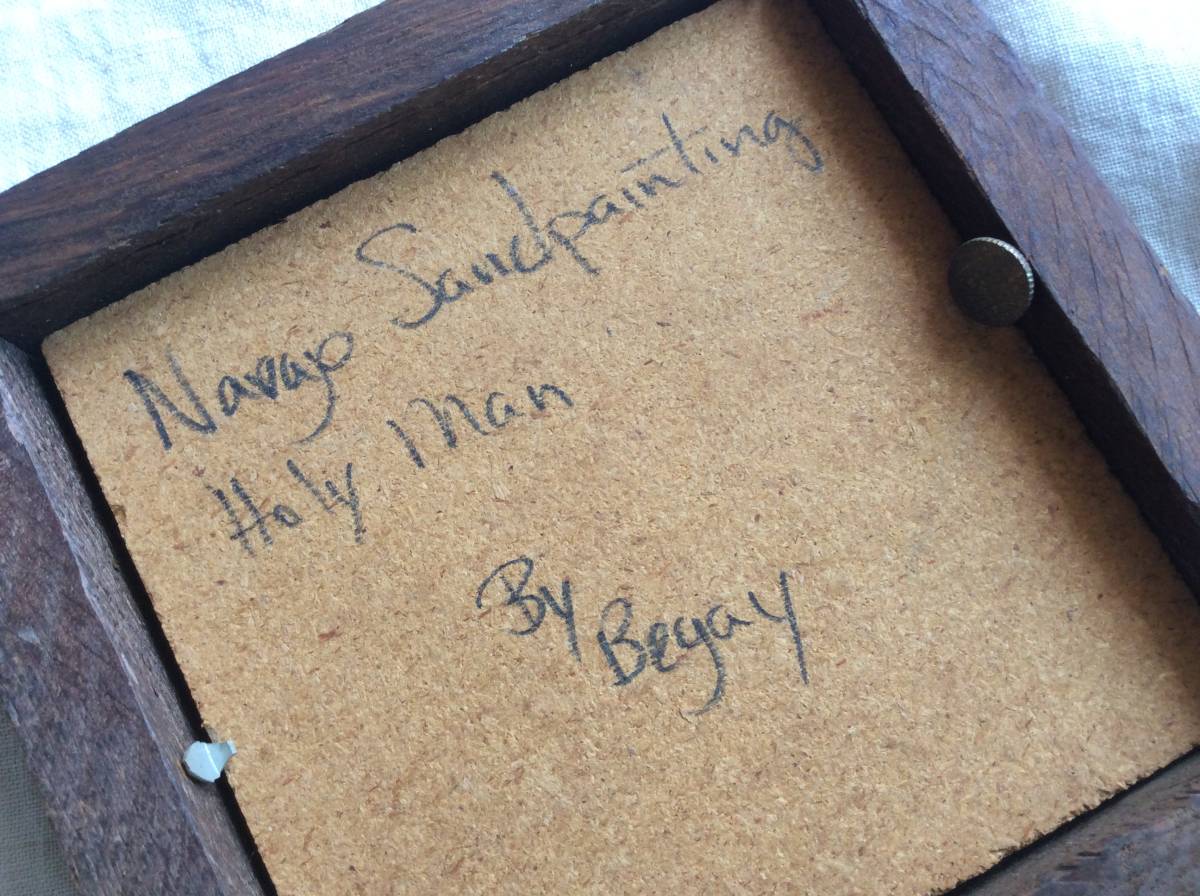 Navajo Sandpainting
Holy Man
By Begay